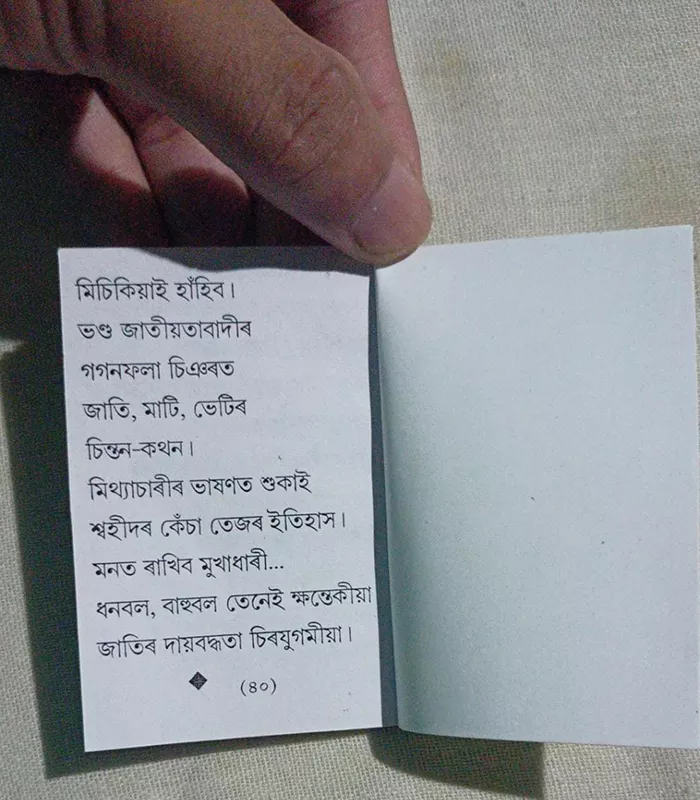 মিচিকিয়াই হাঁহিব।
ভণ্ড জাতীয়তাবাদীৰ
গগনফলা চিঞৰত
জাতি, মাটি, ভেটিৰ
চিন্তন-কথন।
মিথ্যাচাৰীৰ ভাষণত শুকাই
শ্বহীদৰ কেঁচা তেজৰ ইতিহাস।
মনত ৰাখিব মুখাধাৰী...
ধনবল, বাহুবল তেনেই ক্ষন্তেকীয়া
জাতিৰ দায়বদ্ধতা চিৰযুগমীয়া।
◆ (৪০)